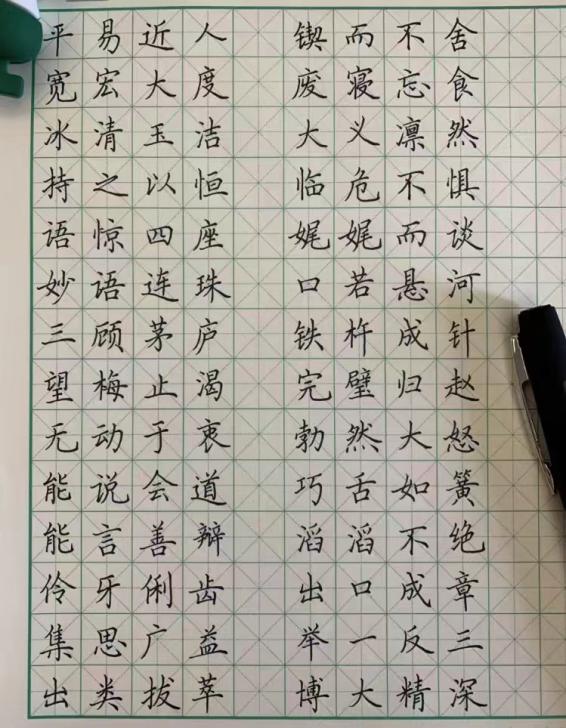 平易近人 锲而不舍
宽宏大度 废寝忘食
冰清玉洁 大义凛然
持之以恒 临危不惧
语惊四座 娓娓而谈
妙语连珠 口若悬河
三顾茅庐 铁杵成针
望梅止渴 完璧归赵
无动于衷 勃然大怒
能说会道 巧舌如簧
能言善辩 滔滔不绝
伶牙俐齿 出口成章
集思广益 举一反三
出类拔萃 博大精深